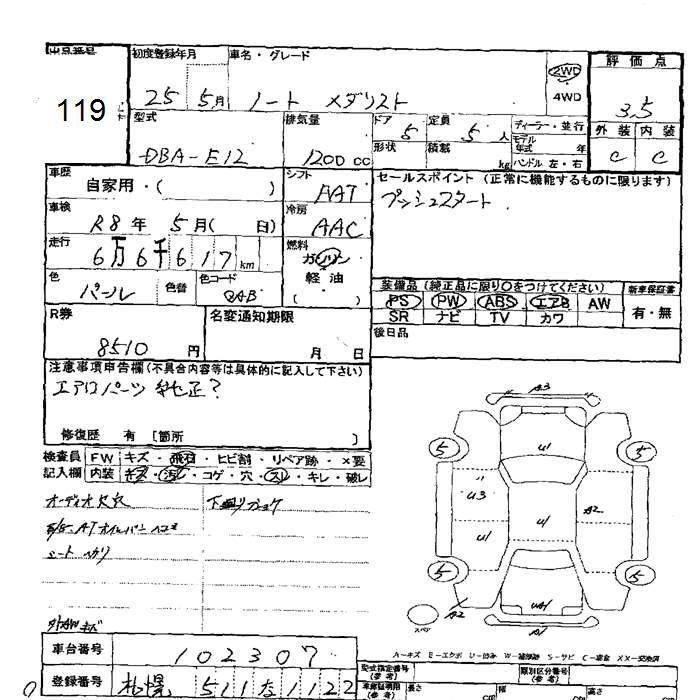 出品番号 119
初度登録年月 25 5月
車名・グレード ノート メダリスト
2WD
4WD
評価点 3.5
外装 内装
C C
型式 DBA-E12
排気量 1200 cc
ドア 5 定員 5 人
形状 積載 kg
ディーラー・並行
モデル年式 年
ハンドル 左・右
車歴 自家用・( )
シフト AAT
車検 R8 年 5 月( 日)
冷房 AAC
走行 6万6千617 km
燃料 ガソリン
軽油
( )
色 パール 色替
色コード QAB
セールスポイント (正常に機能するものに限ります)
プッシュスタート
装備品 (純正品に限り〇をつけてください)
PS PW ABS エアB AW
SR ナビ TV カワ
新車保証書
有・無
後日品
R券 8510 円
名変通知期限
月 日
注意事項申告欄(不具合内容等は具体的に記入して下さい)
エアロパーツ 純正?
修復歴 有 [箇所 ]
検査員 FW キズ・飛石・ヒビ割・リペア跡・×要
記入欄 内装 キズ・汚レ・コゲ・穴・スレ・キレ・破レ
オーディオ欠穴
シート ヘタリ
A3
5 U1 5
U3
U1 U1 A2
5 5
A2 A1
スペア
A=キズ E=エクボ U=凹み W=補修跡 S=サビ C=腐食 XX=交換済
車台番号 102307
登録番号 札幌 511 な 1122
型式指定番号
(参考)
類別区分番号
(参考)
長さ 幅 高さ